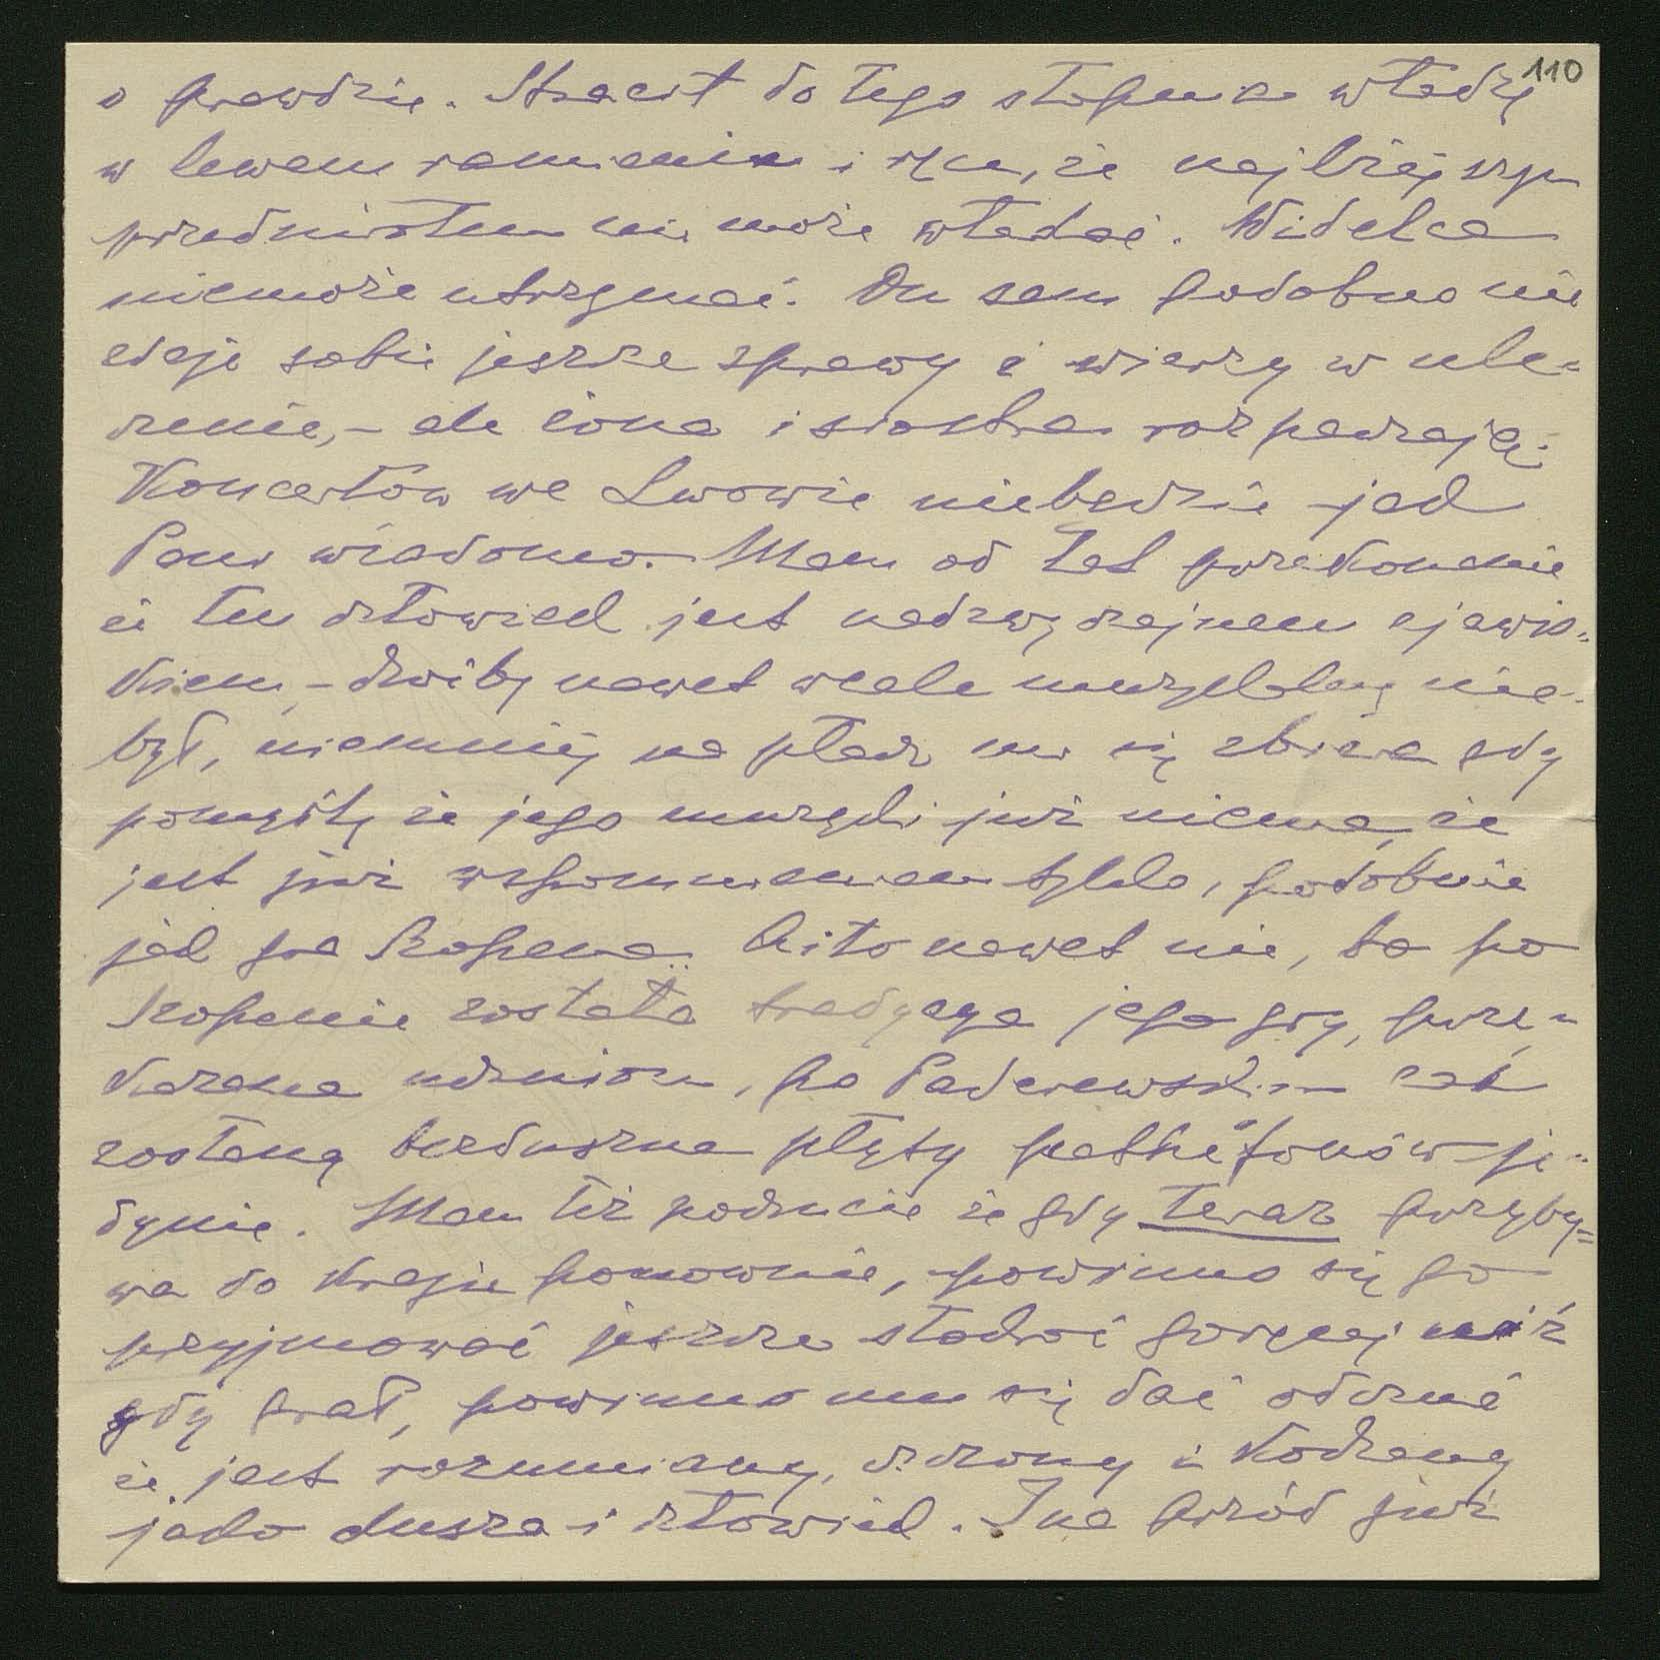 110
o prawdzie. Stracił do tego stopnia władzę
w lewem ramieniu i ręce, że najlżejszym
przedmiotem nie może władać. Widelca
niemoże utrzymać. On sam podobno nie
zdaje sobie jeszcze sprawy i wierzy w ule-
czenie, – ale żona i siostra rozpaczają.
Koncertów we Lwowie niebędzie jak
Panu wiadomo. Mam od lat przekonanie
iż ten człowiek jest nadzwyczajnem zjawis-
kiem, – choćby nawet wcale muzykalny nie-
był, niemniej na płacz mi się zbiera gdy
pomyślę że jego muzyki już niema, że
jest już wspomnieniem tylko, podobnie
jak gra Szopena. Ai to nawet nie, bo po
Szopenie została tradycya jego gry, prze-
kazana uczniom, po Paderewskim zaś
zostaną bezduszne płyty pathéfonów je-
dynie. Mam też poczucie że gdy teraz przyby-
wa do kraju ponownie, powinno się go
przyjmować jeszcze stokroć goręcej niż
gdy grał, powinno mu się dać odczuć
iż jest rozumiany, czczony i kochany
jako dusza i człowiek. I na przód już